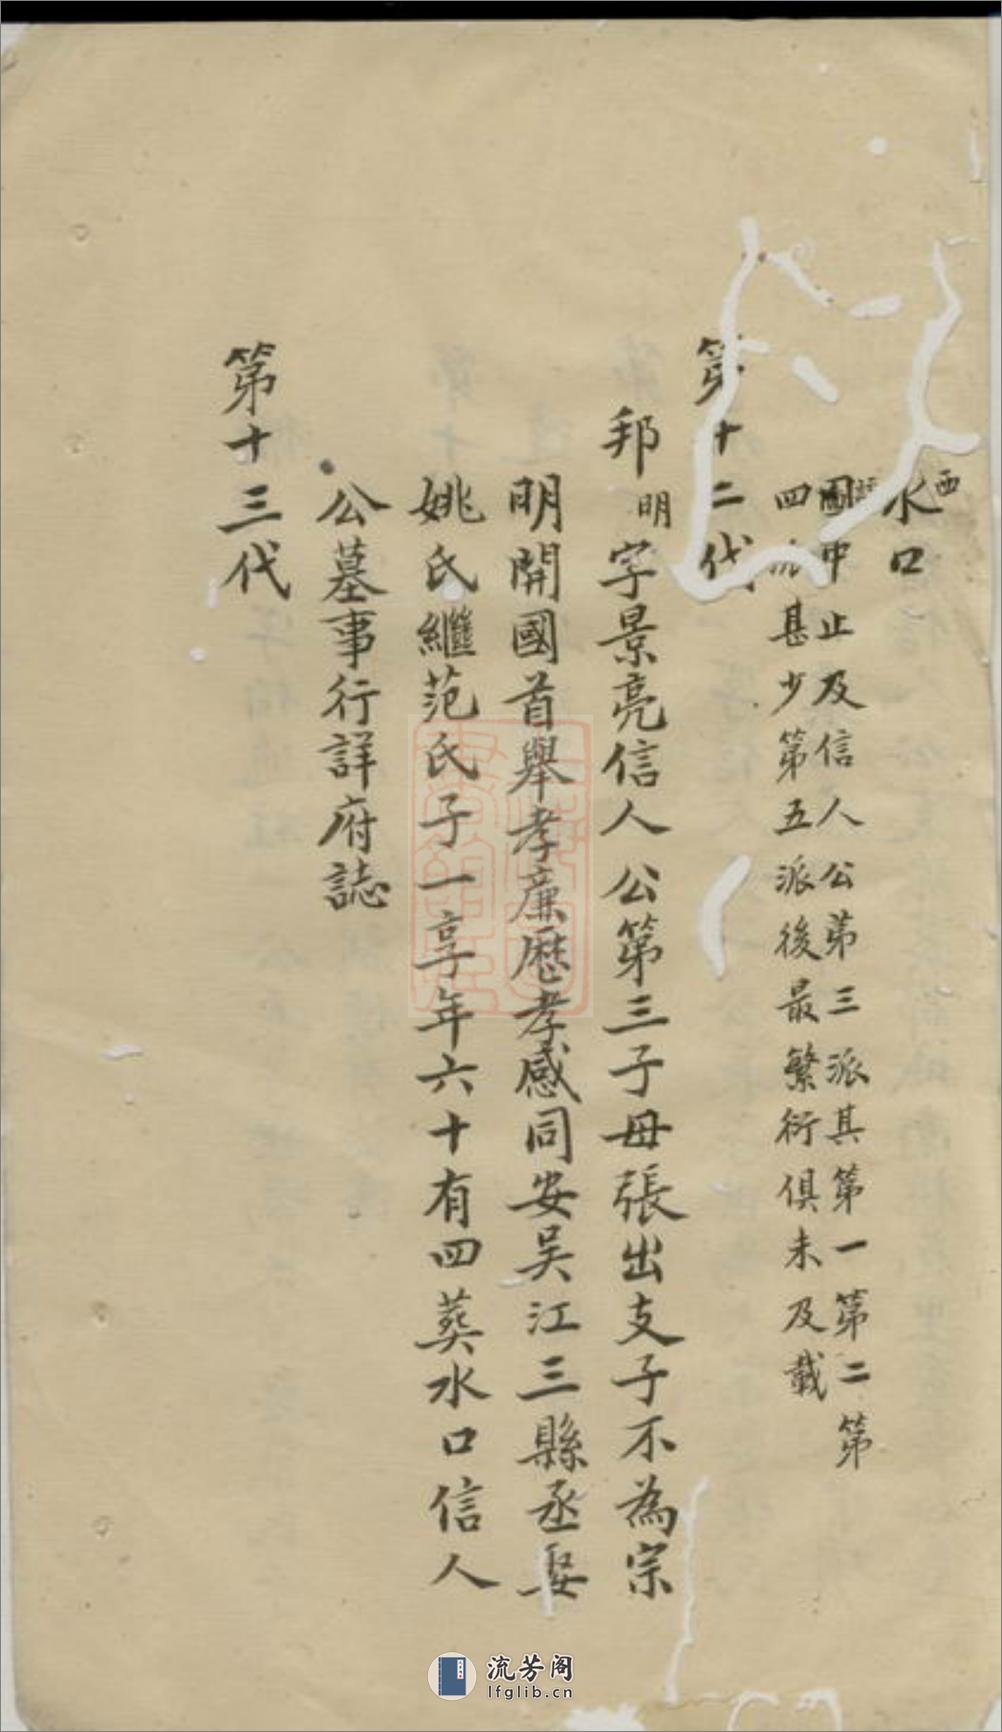 西水口
圖中止及信人公第三派其第一第二第
四派甚少第五派後最繁衍俱未及載
第十二代
邦明字景亮信人公第三子母張出支子不為宗
明開國首舉孝廉歷孝感同安吳江三縣丞娶
姚氏繼范氏子一享年六十有四葬水口信人
公墓事行詳府誌
第十三代
流芳阁
lfglib.cn